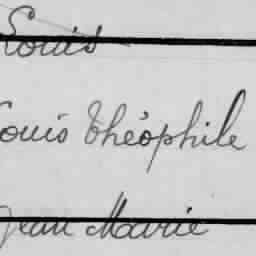 Louis
Louis Théophile
Jean Marie